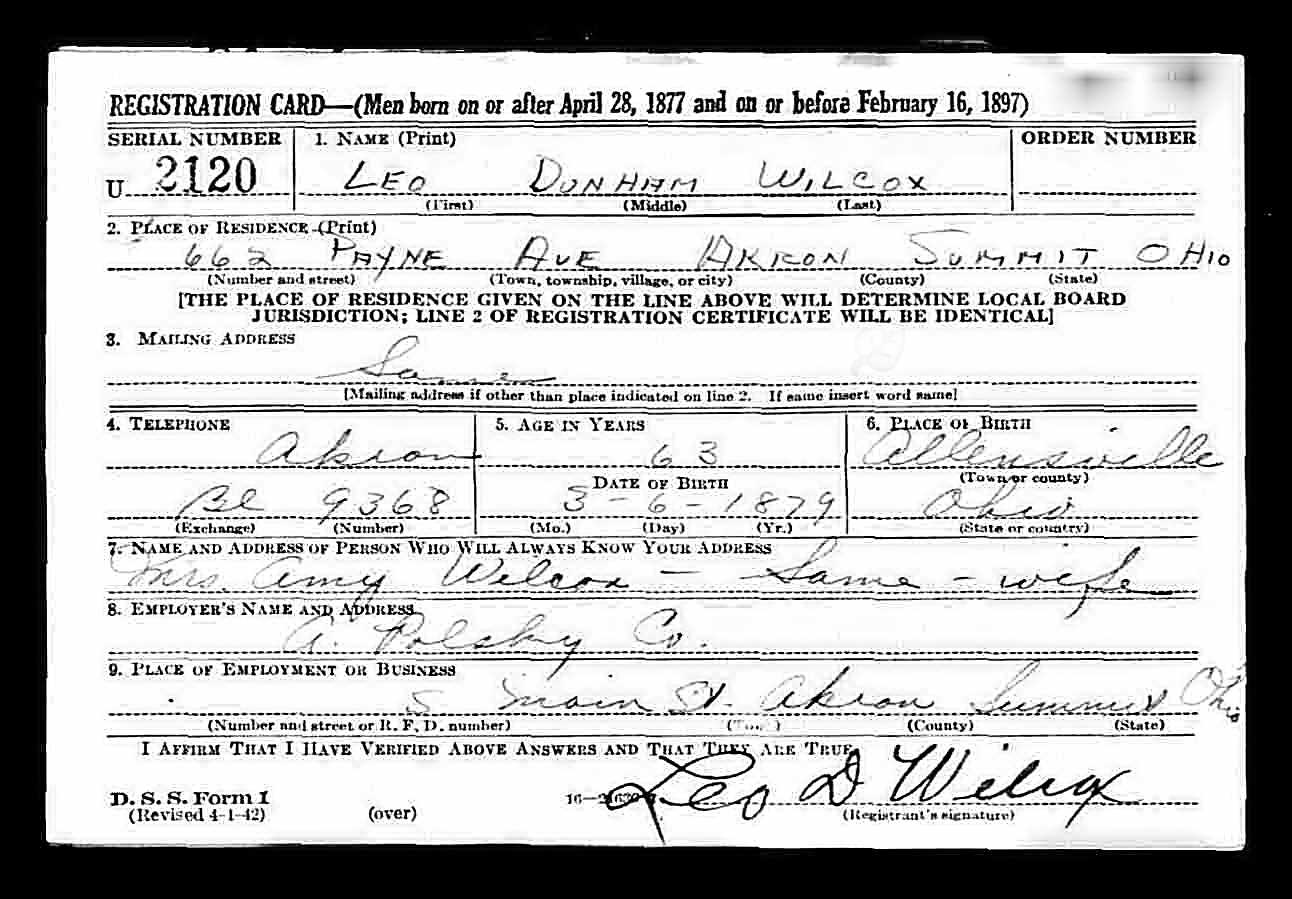 REGISTRATION CARD—(Men born on or after April 28, 1877 and on or before February 16, 1897)
SERIAL NUMBER 1. NAME (Print) ORDER NUMBER
U 2120 LEO DUNHAM WILCOX
(First) (Middle) (Last)
2. PLACE OF RESIDENCE (Print)
662 PAYNE AVE AKRON SUMMIT OHIO
(Number and street) (Town, township, village, or city) (County) (State)
[THE PLACE OF RESIDENCE GIVEN ON THE LINE ABOVE WILL DETERMINE LOCAL BOARD
JURISDICTION; LINE 2 OF REGISTRATION CERTIFICATE WILL BE IDENTICAL]
3. MAILING ADDRESS
Same
[Mailing address if other than place indicated on line 2. If same insert word same]
4. TELEPHONE 5. AGE IN YEARS 6. PLACE OF BIRTH
Akron 63 Allensville
DATE OF BIRTH (Town or county)
Bl 9368 3-6-1879 Ohio
(Exchange) (Number) (Mo.) (Day) (Yr.) (State or country)
7. NAME AND ADDRESS OF PERSON WHO WILL ALWAYS KNOW YOUR ADDRESS
Mrs. Amy Wilcox — Same — wife
8. EMPLOYER'S NAME AND ADDRESS
A. Polsky Co.
9. PLACE OF EMPLOYMENT OR BUSINESS
S Main St. Akron Summit Ohio
(Number and street or R. F. D. number) (Town) (County) (State)
I AFFIRM THAT I HAVE VERIFIED ABOVE ANSWERS AND THAT THEY ARE TRUE
D. S. S. Form 1 Leo D Wilcox
(Revised 4-1-42) (over) (Registrant's signature)